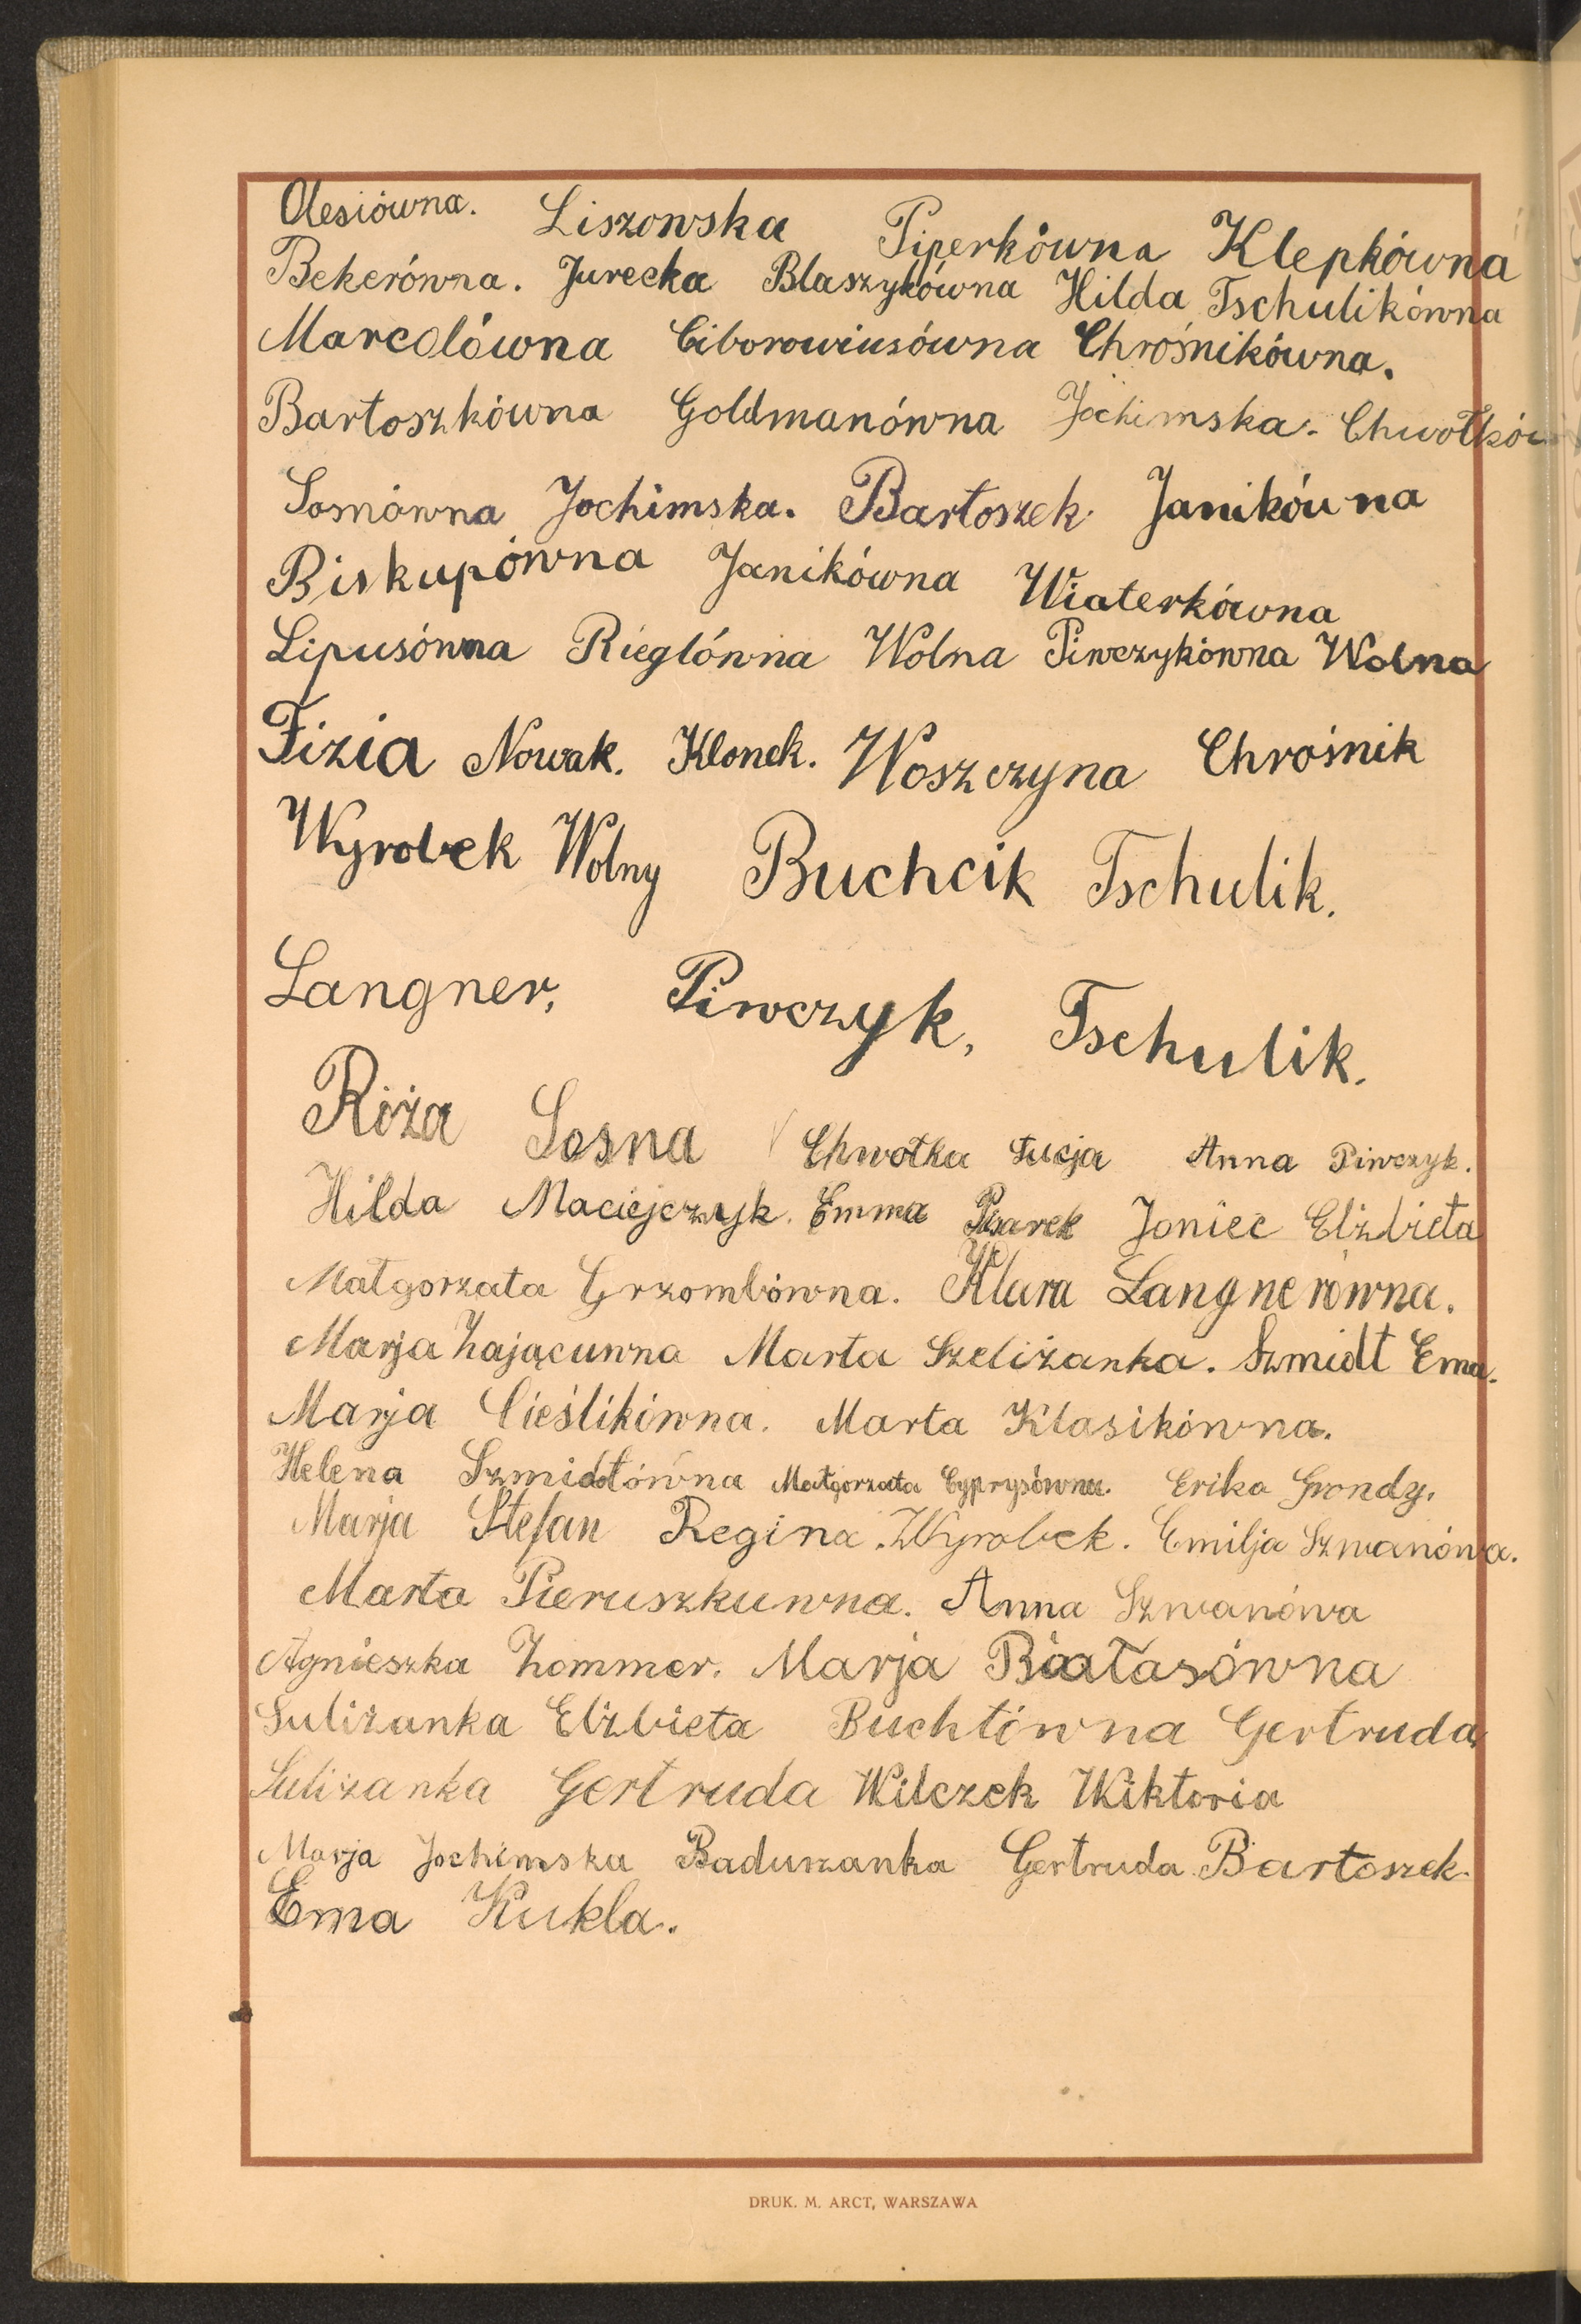 Olesiówna. Liszowska Piperkówna Klepkówna
Bekerówna. Jurecka Blaszykówna Hilda Tschulikówna
Marcolówna Ciborowiusówna Chrośnikówna.
Bartoszkówna Goldmanówna Jochimska. Chwołków
Sosnówna Jochimska. Bartoszek Janikówna
Biskupówna Janikówna Wiaterkówna
Lipusówna Rieglówna Wolna Piwczykówna Wolna
Fizia Nowak. Klonek. Woszczyna Chrośnik
Wyrobek Wolny Buchcik Tschulik.
Langner, Piwczyk, Tschulik.
Róża Sosna Chwołka Łucja Anna Piwczyk.
Hilda Maciejczyk. Emma Pisarek Joniec Elżbieta
Małgorzata Grzombówna. Klara Langnerówna.
Marja Zającuwna Marta Szeliżanka. Szmidt Ema.
Marja Cieślikówna. Marta Klasikówna.
Helena Szmidtówna Małgorzata Cyprysówna. Erika Grondy.
Marja Stefan Regina Wyrobek. Emilja Szwanówa.
Marta Pieruszkuwna. Anna Szwanówa
Agnieszka Zommer. Marja Białasówna
Suliżanka Elżbieta Buchtówna Gertruda
Suliżanka Gertruda Wilczek Wiktoria
Marja Jochimska Baduszanka Gertruda Bartoszek.
Ema Kukla.
DRUK. M. ARCT, WARSZAWA